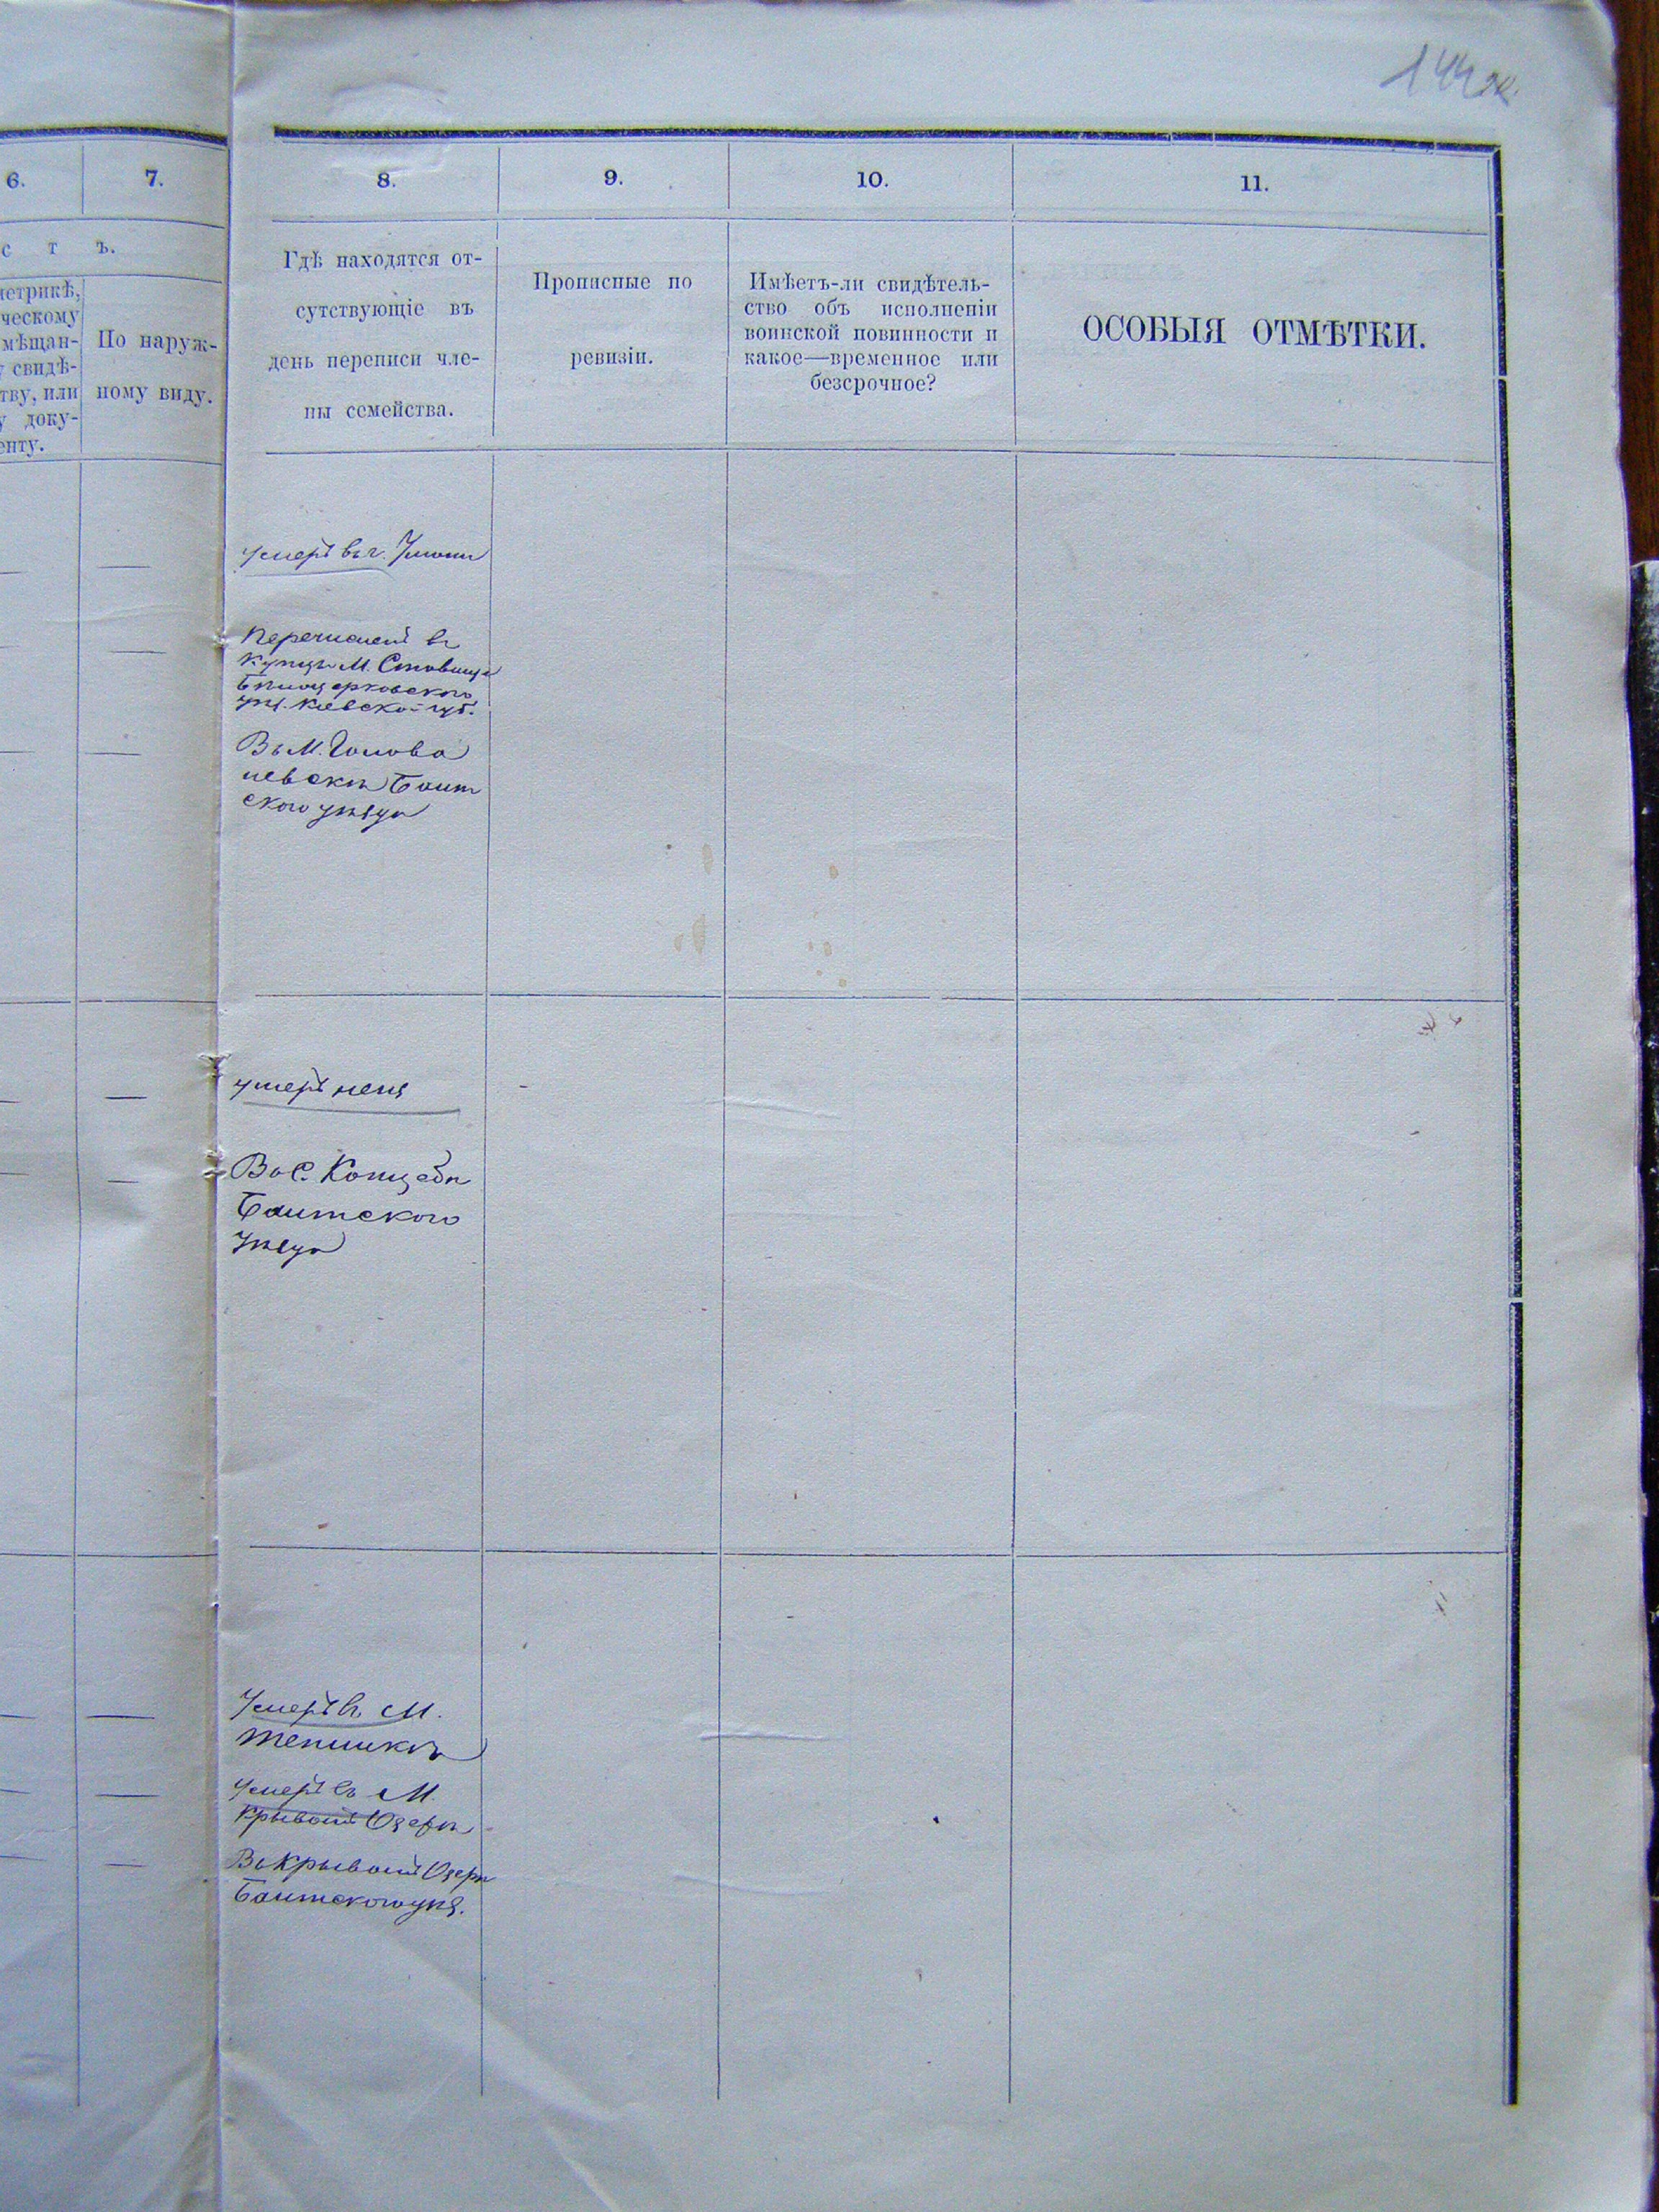 144
6.
7.
8.
9.
10.
11.
с т ъ.
метрикѣ,
ческому
мѣщан-
у свидѣ-
тву, или
у доку-
енту.
По наруж-
ному виду.
Гдѣ находятся от-
сутствующіе въ
день переписи чле-
ны семейства.
Прописные по
ревизіи.
Имѣетъ-ли свидѣтель-
ство объ исполненіи
воинской повинности и
какое—временное или
безсрочное?
ОСОБЫЯ ОТМѢТКИ.
умеръ въ г. Умани
Перечисленъ въ
купцы М. Ставища
Бѣлоцерковского
уѣз. Кіевской губ.
Въ М. Голова
невскѣ Балт
ского уѣзда
умеръ
Въ С. Коцебѣ
Балтского
Уѣзда
Умеръ въ М.
Тепликѣ
Умеръ въ М.
Крывомъ Озерѣ
Въ Крывомъ Озерѣ
Балтского уѣз.